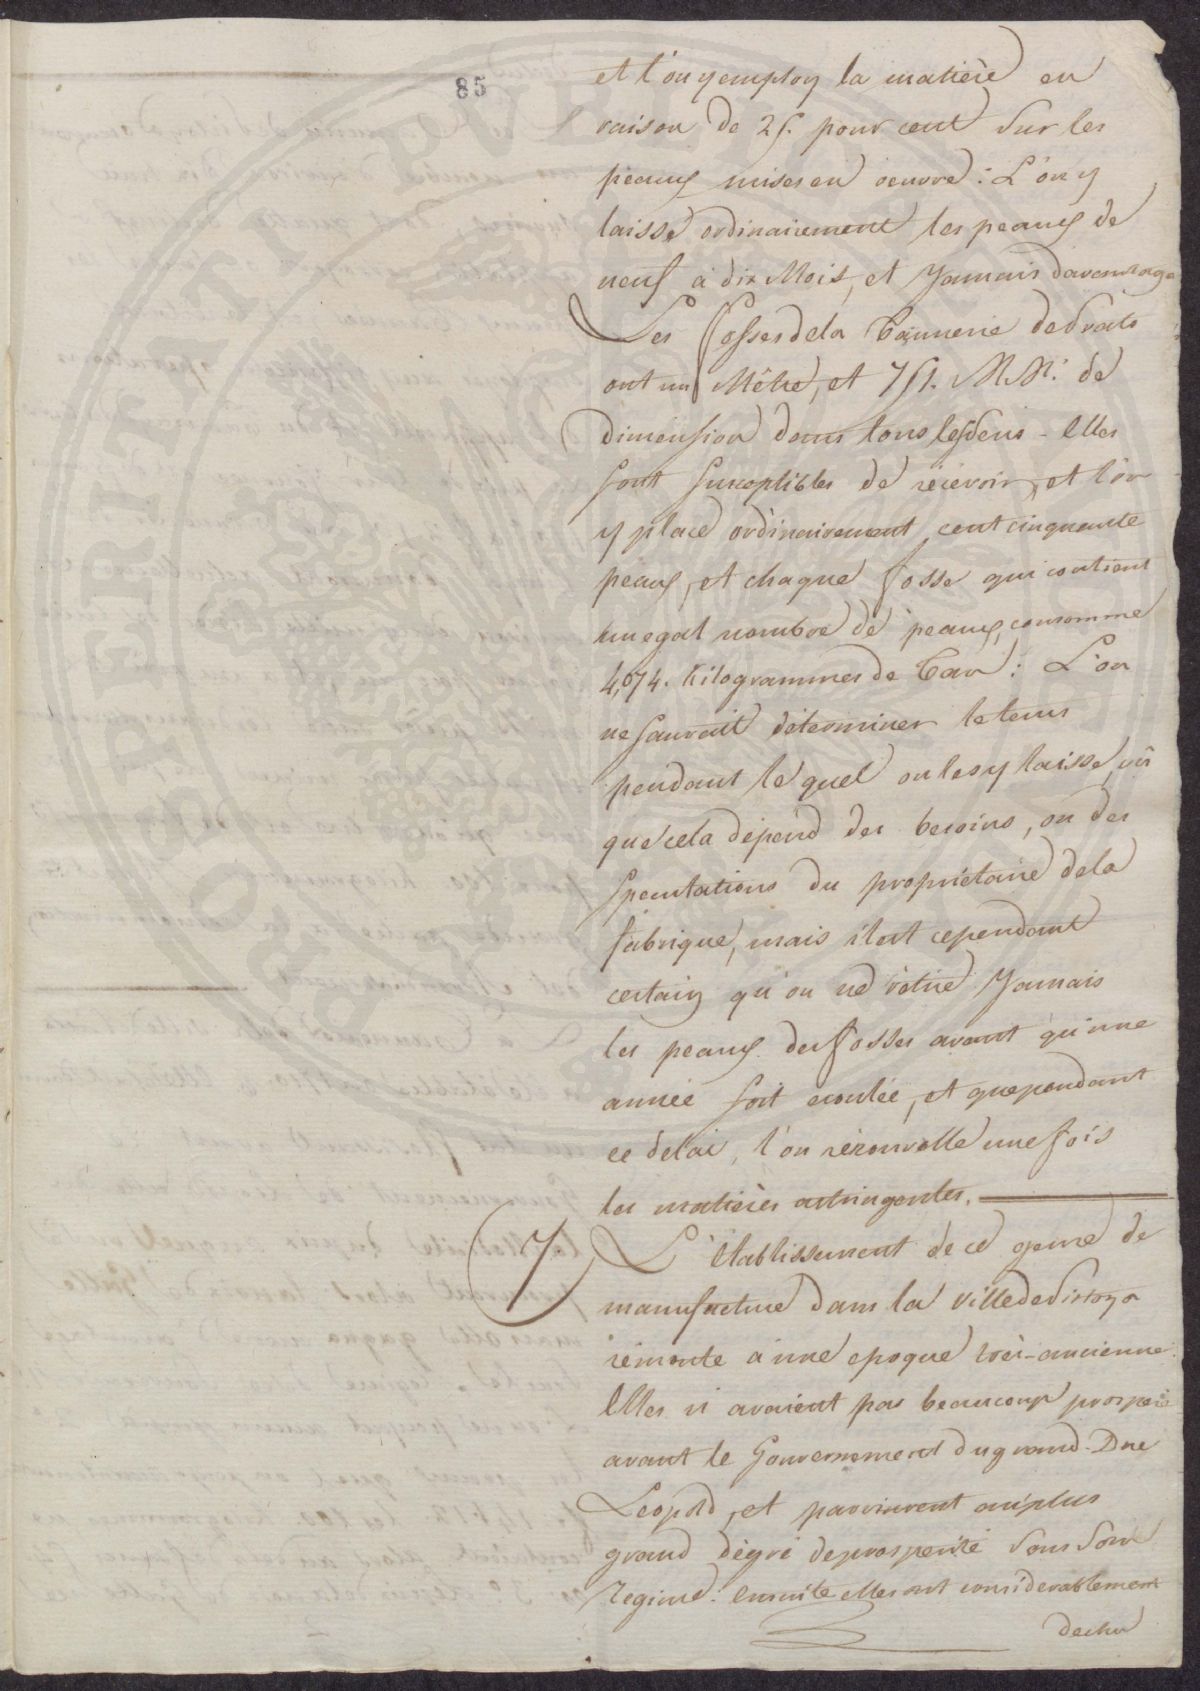 85
et l'on y employ la matière en
raison de 25. pour cent sur les
peaux mises en oeuvre : L'on y
laisse ordinairement les peaux de
neuf à dix Mois, et Jamais davantage
Les fosses de la Tannerie de Prato
ont un Mètre, et 751. M.M. de
dimension dans tous les sens - Elles
sont susceptibles de récévoir, et l'on
y place ordinairement cent cinquante
peaux, et chaque fosse qui contient
un egal nombre de peaux, consomme
4,074. Kilogrammes de Tan : L'on
ne saurait déterminer le tems
pendant le quel on les y laisse, vû
que cela dépend des besoins, ou des
speculations du propriétaire de la
fabrique, mais il est cependant
certain qu'on ne rétire Jamais
les peaux des fosses avant qu'une
année soit ecoulée, et que pendant
ce delai, l'on rénouvelle une fois
les matières astringentes.
7 L'établissement de ce genre de
manufacture dans la Ville de Pistoya
rémonte à une epoque très-ancienne.
Elles n'avaient pas beaucoup prosperé
avant le Gouvernement du grand-Duc
Leopold, et parvinrent au plus
grand dégré de prosperité sous son
Regime : ensuite elles ont considerablement
dechu